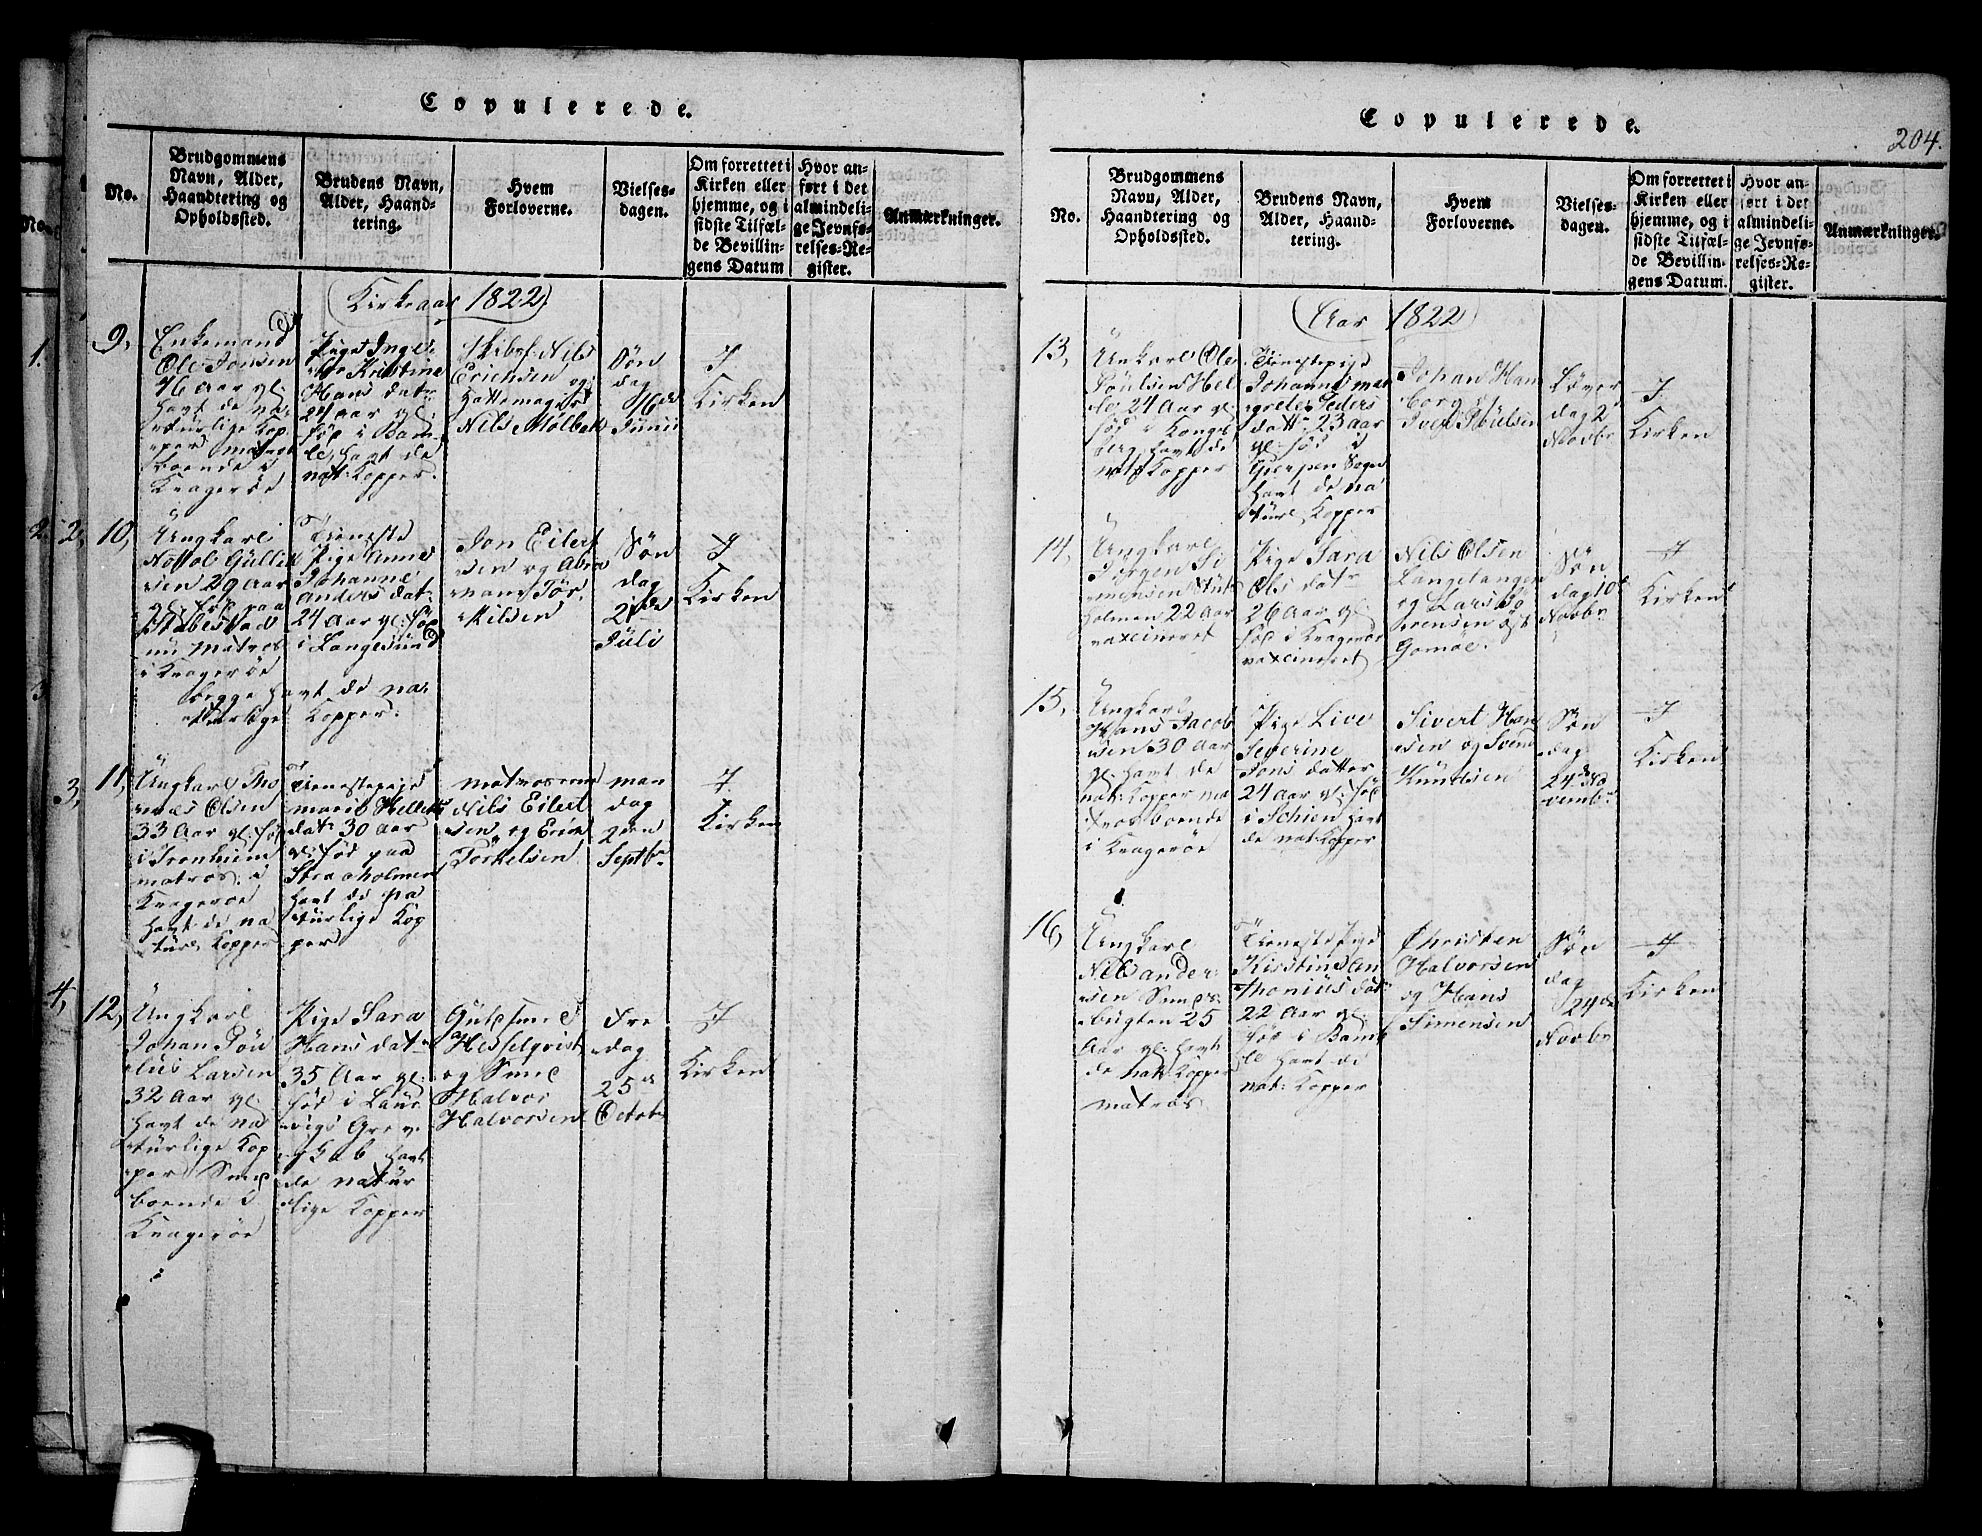 Copulerede.
No.
Brudgommens
Navn, Alder,
Haandtering og
Opholdssted.
Brudens Navn,
Alder, Haand-
tering.
Hvem
Forloverne.
Vielses-
dagen.
Om forrettet i
Kirken eller
hjemme, og i
sidste Tilfæl-
de Bevillin-
gens Datum
Hvor an-
ført i det
almindeli-
ge Jevnfø-
relses-Re-
gister.
Anmærkninger.
Kirkeaar 1822
9,
Enkemand
Ole Jonsen
46 aar gl:
havt de na-
turlige Kop
per matros
boende i
Kragerøe
Pige Inge-
Kristine
Hans dat
24 aar gl:
fød i Bam-
le, havt de
nat: Kopper.
Skibsf: Nils
Erichsen og
Hattemager
Nils Mølbak
Søn
dag
16de
Junii
I
Kirken
10,
Ungkarl
Nottob Gullik
sen 29 aar
gl: fød paa
Stabestad
nu Matros
i Kragerøe
Tieneste
Pige Anne
Johanne
Anders dat
24 aar gl: fød
i Langesund
begge havt de na-
turlige Kopper.
Jon Eilert
sen og Abra
ham Tor-
kilsen
Søn
dag
21de
Juli
I
Kirken
11,
Ungkarl Tho
mas Olsen
33 Aar gl: fød
i Tronhiem
matros i
Kragerøe
havt de na
turl: Kopper
Tienestepige
Maria Helleks
dat 30 aar
gl: fød paa
Straaholmen
havt de na
turlige Kop
per
matroserne
Nils Eilert
sen, og Erich
Torkelsen
man
dag
9een
Septbr
I
Kirken
12,
Ungkarl
Johan Pou
lus Larsen
32 Aar gl:
havt de na
turlige Kop
per Smed
boende i
Kragerøe
Pige Sara
Hans dat
35 Aar gl:
fød i Laur
vigs Grev-
skab havt
de natur
lige Kopper
Guldsmed
Hesselqvist
og Smed
Halvor
Halvorsen
Fre
dag
25d
Octob
I
Kirken
Copulerede.
204.
No.
Brudgommens
Navn, Alder,
Haandtering og
Opholdssted.
Brudens Navn,
Alder, Haand-
tering.
Hvem
Forloverne.
Vielses-
dagen.
Om forrettet i
Kirken eller
hjemme, og i
sidste Tilfæl-
de Bevillin-
gens Datum.
Hvor an-
ført i det
almindeli-
ge Jevnfø-
relses-Re-
gister.
Anmærkninger.
Aar 1822
13,
Unkarl Ole
Poulsen Hel
le, 24 Aar gl:
fød i Kongs
berg, havt de
nat: Kopper
Tienstepige
Johanne mar
grete Peders
dat: 23 aar
gl: fød i
Gierpen Sogn
havt de na
turl: Kopper
Johan Ham
borg og
Iver Poulsen
Løver
dag 2
Novbr
I
Kirken
14,
Ungkarl
Jørgen Si
mensen Stut
holmen 22 aar
vaxcineret
Pige Sara
Ols dat
26 aar gl:
fød i Kragerøe
vaxcineret
Nils Olsen
Langetangen
og Lars Sø
rensen øst
Gomøe.
Søn
dag 10d
Novbr
I
Kirken
15,
Ungkarl
Hans Jacob
sen 30 aar
gl: havt de
nat: Kopper ma
tros boende
i Kragerøe
Pige Live
Severine
Jons datter
24 aar gl: fød
i Schien havt
de nat: Kopper
Sivert Han
sen og Svend
Knudsen
Søn
dag
24de No
vembr
I
Kirken
16,
Ungkarl
Nils Ander-
sen Smeds-
bugten 25
Aar gl: havt
de nat: Kopper
matros
Tieneste Pige
Kirstine An
thonius dat
22 Aar gl:
fød i Bam
le havt de
nat: Kopper
Christen
Halvorsen
og Hans
Simensen
Søn
dag
24de
Novbr
I
Kirken
1.
2.
2,
3
3,
4,